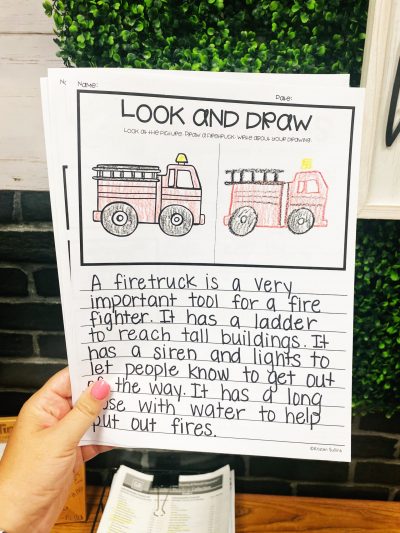 Name:
Date:
LOOK AND DRAW
Look at the picture. Draw a firetruck. Write about your drawing.
A firetruck is a very
important tool for a fire
fighter. It has a ladder
to reach tall buildings. It
has a siren and lights to
let people know to get out
of the way. It has a long
hose with water to help
put out fires.